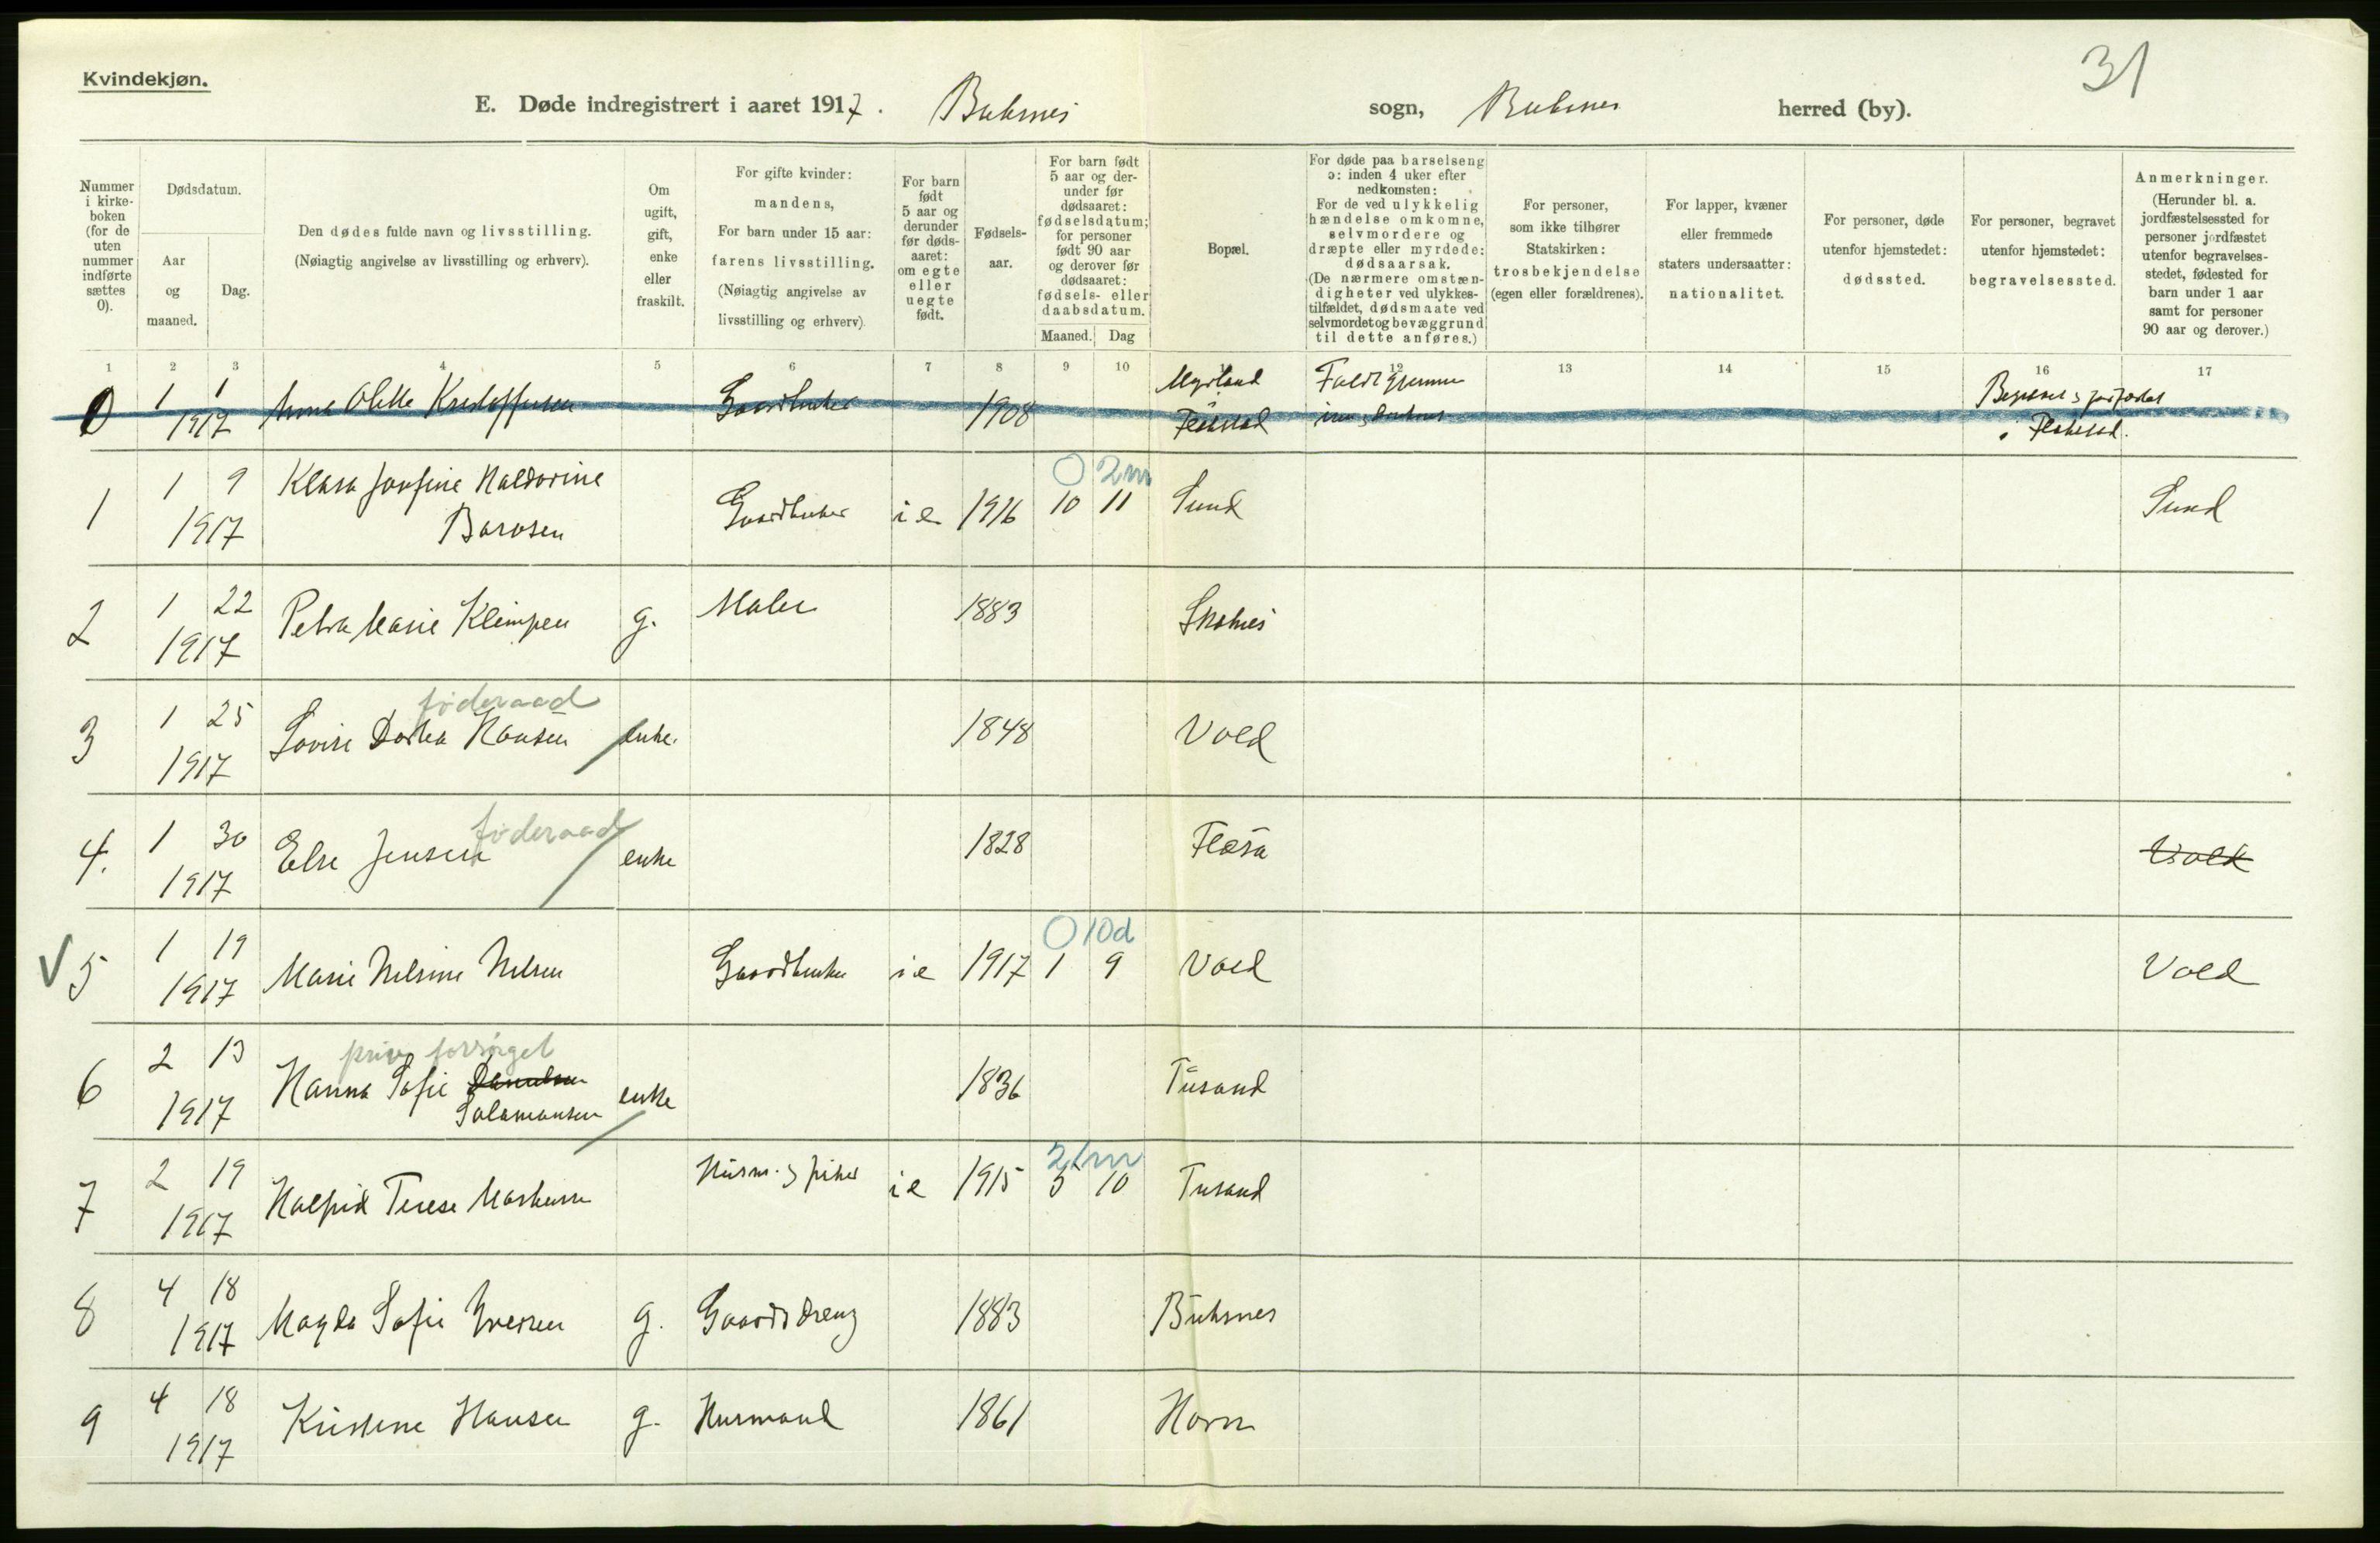 31
Kvindekjøn.
E. Døde indregistrert i aaret 1917. Buksnes sogn, Buksnes herred (by).
Nummer i kirke-boken (for de uten nummer indførte sættes 0).
Dødsdatum.
Aar og maaned.
Dag.
Den dødes fulde navn og livsstilling.
(Nøiagtig angivelse av livsstilling og erhverv).
Om ugift, gift, enke eller fraskilt.
For gifte kvinder: mandens,
For barn under 15 aar: farens livsstilling.
(Nøiagtig angivelse av livsstilling og erhverv)
For barn født 5 aar og derunder før døds-aaret: om egte eller uegte født.
Fødsels-aar.
For barn født 5 aar og der-under før dødsaaret: fødselsdatum; for personer født 90 aar og derover før dødsaaret: fødsels- eller daabsdatum.
Maaned. Dag
Bopæl.
For døde paa barselseng ɔ: inden 4 uker efter nedkomsten:
For de ved ulykkelig hændelse omkomne, selvmordere og dræpte eller myrdede: dødsaarsak.
(De nærmere omstæn-digheter ved ulykkes-tilfældet, dødsmaate ved selvmordet og bevæggrund til dette anføres.)
For personer, som ikke tilhører Statskirken: trosbekjendelse (egen eller forældrenes).
For lapper, kvæner eller fremmede staters undersaatter: nationalitet.
For personer, døde utenfor hjemstedet: dødssted.
For personer, begravet utenfor hjemstedet: begravelsessted.
Anmerkninger.
(Herunder bl. a. jordfæstelsessted for personer jordfæstet utenfor begravelses-stedet, fødested for barn under 1 aar samt for personer 90 aar og derover.)
1 2 3 4 5 6 7 8 9 10 12 13 14 15 16 17
0 1 1 1917 Anna Olette Kristoffersen Gaardbruker 1908 Myrland Flakstad Faldt gjennem i Flakstad.
0 2m
1 1 9 1917 Klara Josefine Haldorine Barosen Gaardbruker i e 1916 10 11 Sund Sund
2 1 22 1917 Petra Marie Klimpen g. Maler 1883 Skotnes
føderaad
3 1 25 1917 Lovise Dortea Hansen enke. 1848 Vold
føderaad
4. 1 30 1917 Else Jensen enke 1828 Flæsa
0 10d
V 5 1 19 1917 Marie Nilsine Nilsen Gaardbruker i e 1917 1 9 Vold Vold
priv forsørget
6 2 13 1917 Hanna Sofie Danielsen Salamonsen enke 1836 Tusand
21m
7 2 19 1917 Halfrid Terese Markussen Husm. & fisker i e 1915 5 10 Tusand
8 4 18 1917 Magda Sofie Iversen g. Gaardsdreng 1883 Buksnes
9 4 18 1917 Kristine Hansen g. Husmand 1861 Horn